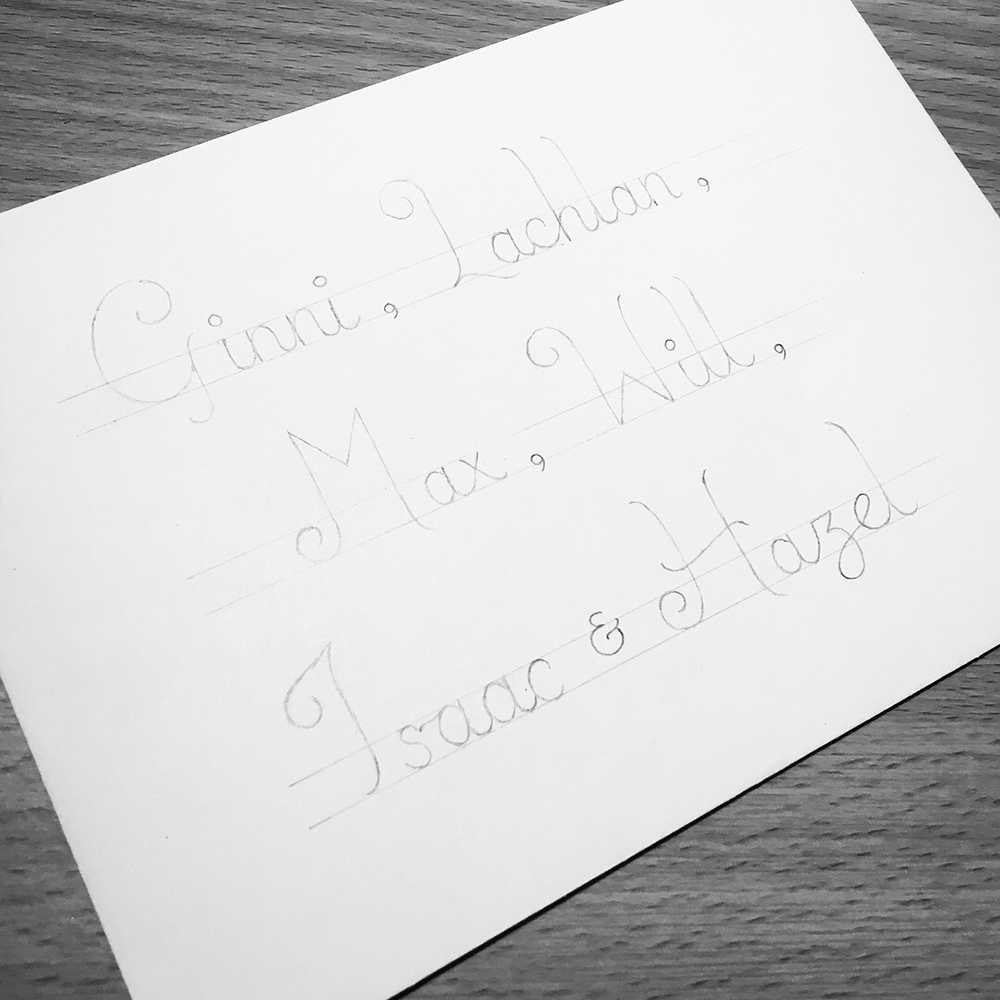 Ginni, Lachlan,
Max, Will,
Isaac & Hazel